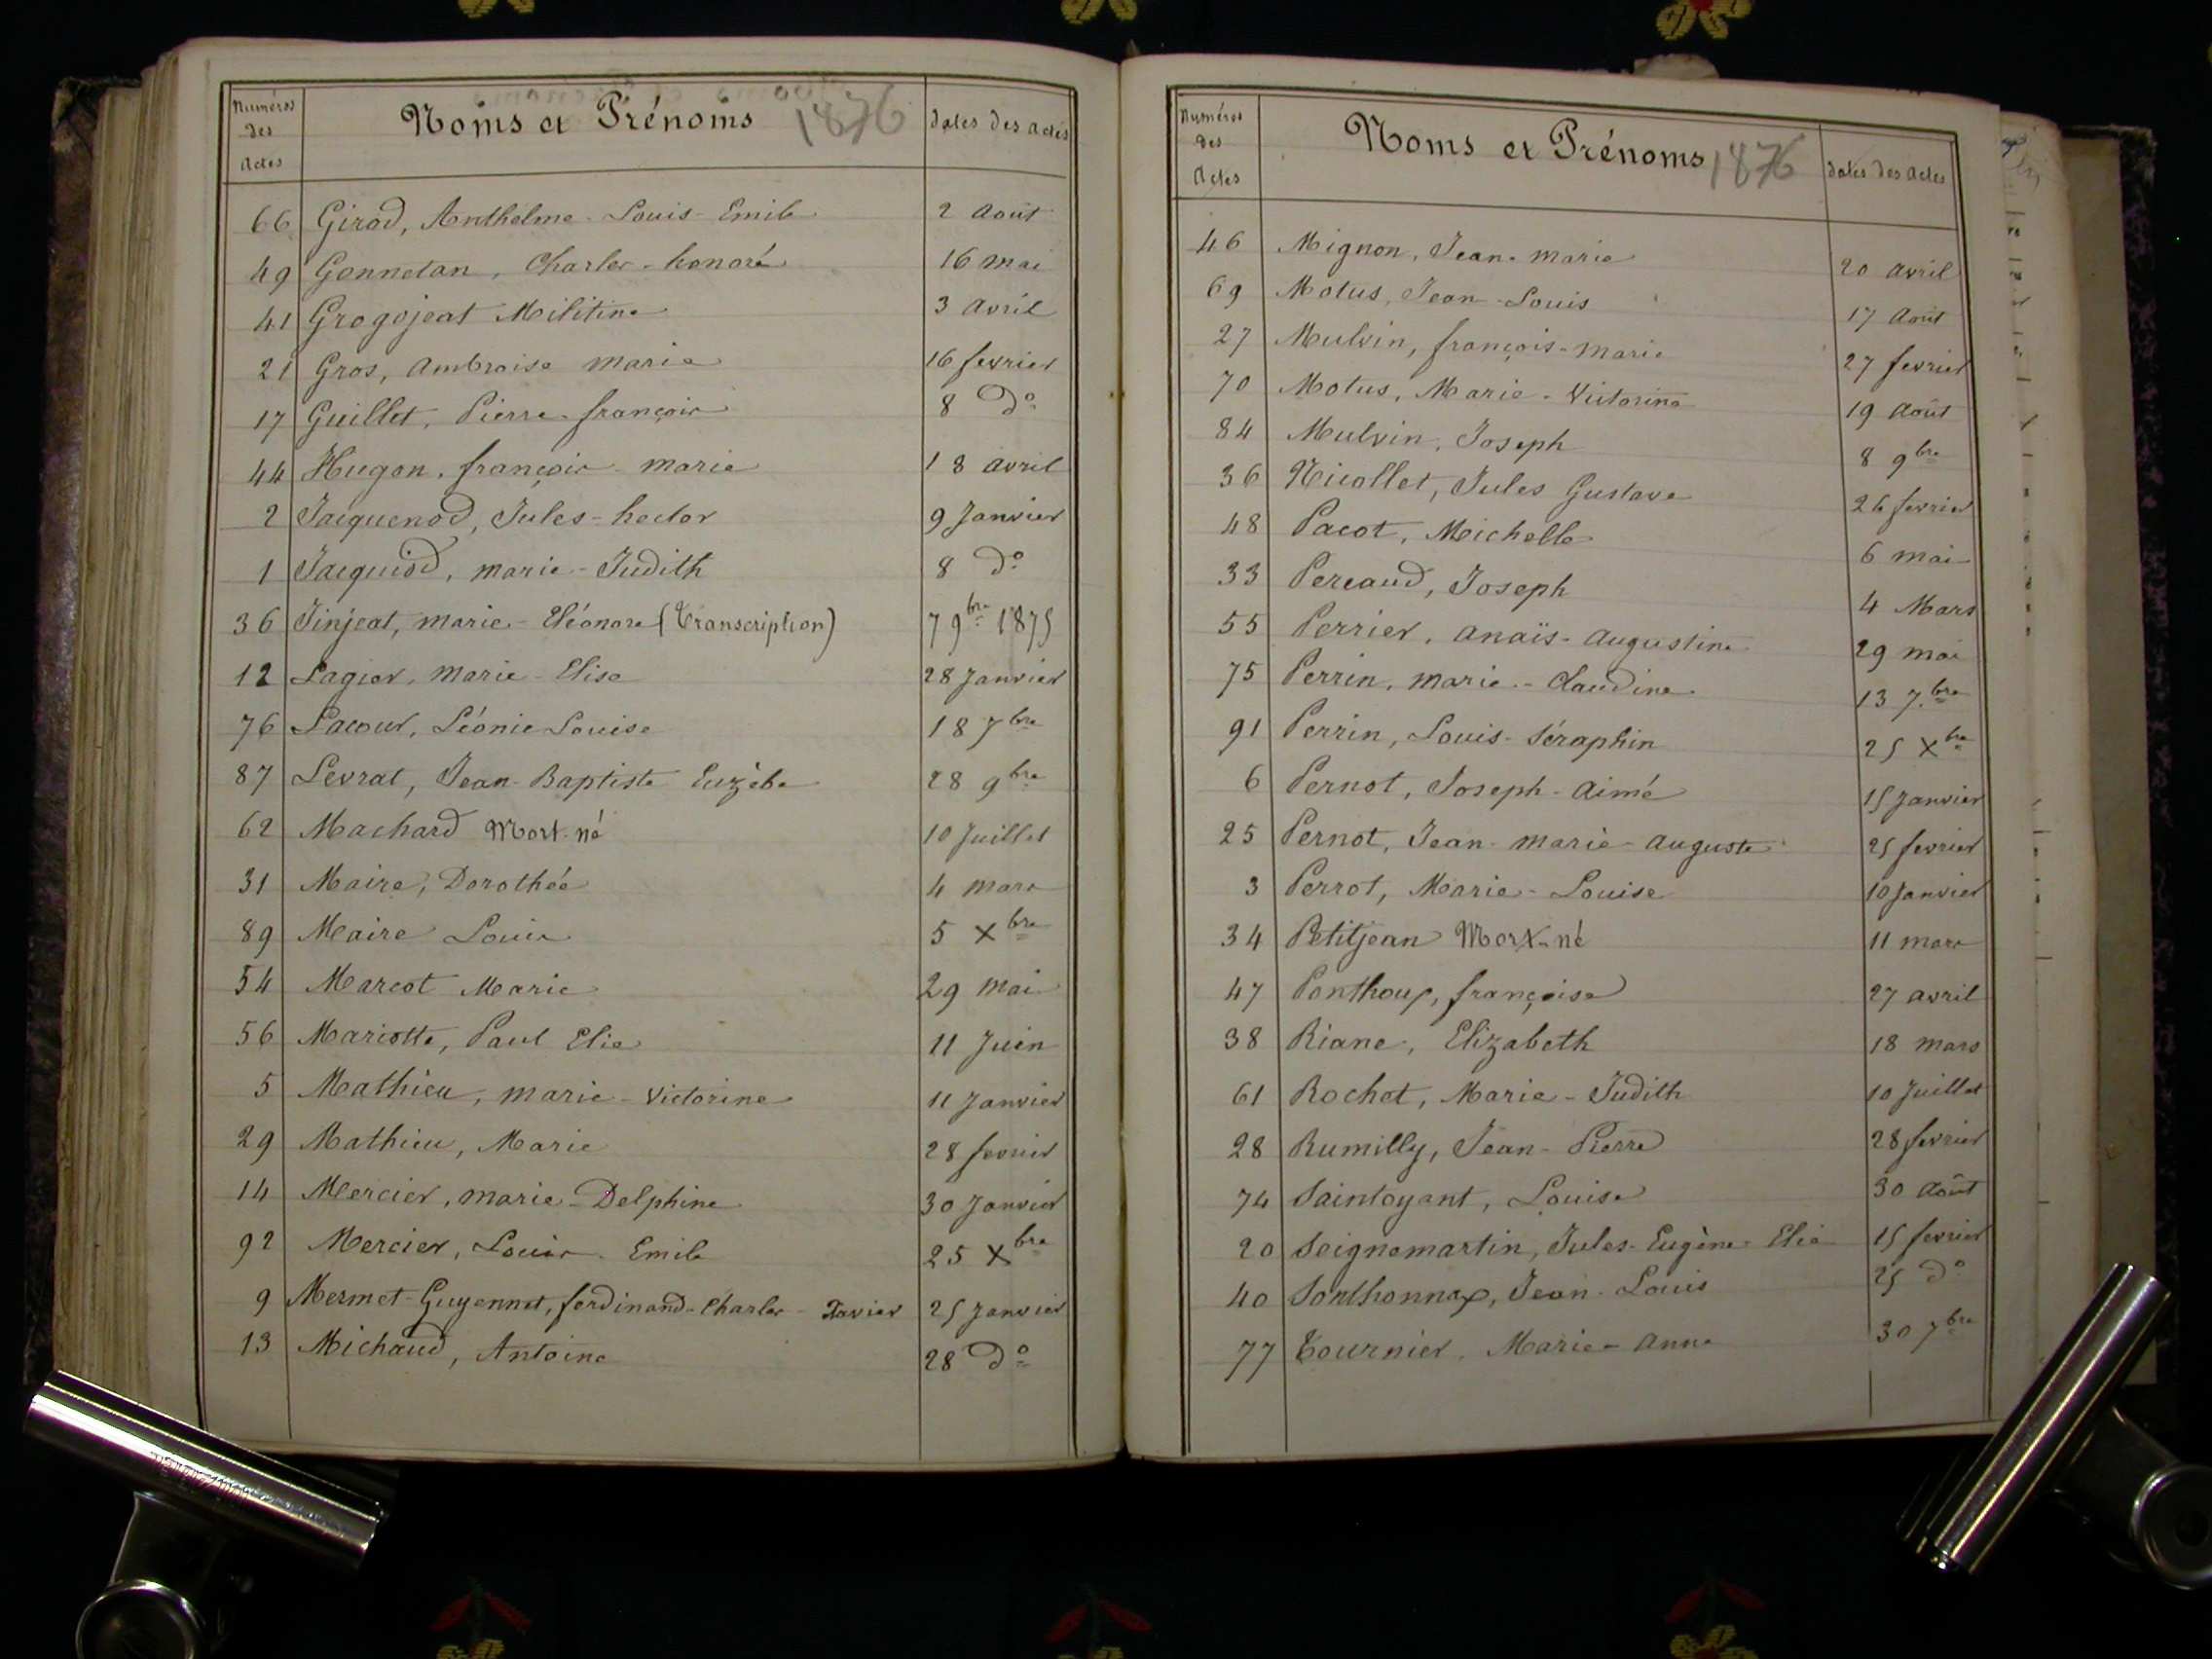 Numéros des Actes Noms et Prénoms 1876 dates des actes
66 Girod, Anthelme Louis Emile 2 Août
49 Gonnetan, Charles-honoré 16 mai
41 Grogojeat Militine 3 Avril
21 Gros, Ambroise Marie 16 fevrier
17 Guillet, Pierre-françois 8 d°
44 Hugon, françois-marie 18 avril
2 Jacquenod, Jules-hector 9 Janvier
1 Jacquiod, marie-Judith 8 d°
36 Jinjeat, marie-Eléonore (Transcription) 7 9bre 1875
12 Lagier, Marie-Elise 28 Janvier
76 Lacour, Léonie Louise 18 7bre
87 Levrat, Jean-Baptiste Euzèbe 28 9bre
62 Machard Mort-né 10 Juillet
31 Maire, Dorothée 4 mars
89 Maire Louis 5 Xbre
54 Marcot Marie 29 Mai
56 Mariotte, Paul Elie 11 Juin
5 Mathieu, marie-Victorine 11 Janvier
29 Mathieu, Marie 28 fevrier
14 Mercier, marie-Delphine 30 Janvier
92 Mercier, Louis Emile 25 Xbre
9 Mermet-Guyennet, ferdinand-Charles-Xavier 25 Janvier
13 Michaud, Antoine 28 d°
Numéros des Actes Noms et Prénoms 1876 dates des actes
46 Mignon, Jean-marie 20 avril
69 Motus, Jean-Louis 17 Août
27 Mulvin, françois-marie 27 fevrier
70 Motus, Marie-Victorine 19 Août
84 Mulvin, Joseph 8 9bre
36 Nicollet, Jules Gustave 26 fevrier
48 Pacot, Michelle 6 mai
33 Percaud, Joseph 4 Mars
55 Perrier, anaïs-augustine 29 mai
75 Perrin, marie-Claudine 13 7bre
91 Perrin, Louis-Séraphin 25 Xbre
6 Pernot, Joseph-aimé 15 Janvier
25 Pernot, Jean-marie-auguste 25 fevrier
3 Perrot, Marie-Louise 10 Janvier
34 Petitjean Mort-né 11 mars
47 Ponthoux, françoise 27 avril
38 Riane, Elizabeth 18 mars
61 Rochet, Marie-Judith 10 Juillet
28 Rumilly, Jean-Pierre 28 fevrier
74 Saintoyant, Louise 30 Août
20 Seignemartin, Jules-Eugène-Elie 15 fevrier
40 Sonthonnax, Jean-Louis 25 d°
77 Tournier, Marie-Anne 30 7bre